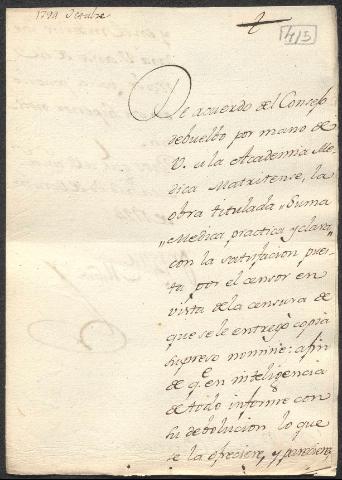 1791 Octubre
2
145
De acuerdo del Consejo
debuelbo por mano de
V. a la Academia Me-
dica Matritense, la
obra titulada "Suma
"Medica, practica y clara,"
con la satisfacion pues-
ta por el censor en
vista de la censura de
que se le entregó copia
supreso nomine: a fin
de q.e en inteligencia
de todo informe con
su debolucion lo que
se la ofreciere, y pareciere